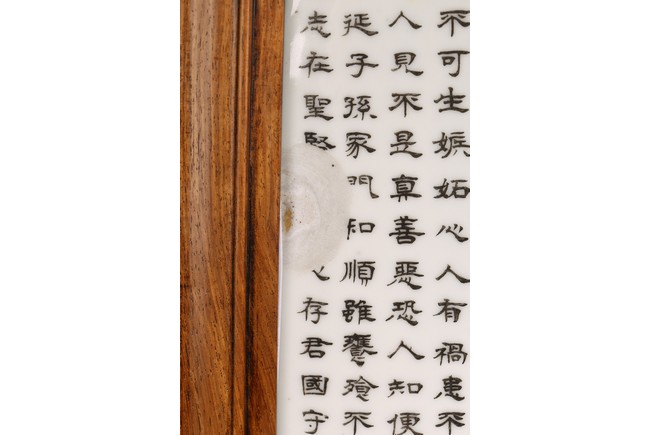 不可生嫉妬心人有禍患不
人見不是真善惡恐人知便
延子孫家門和順雖饔飧不
志在聖賢心存君國守